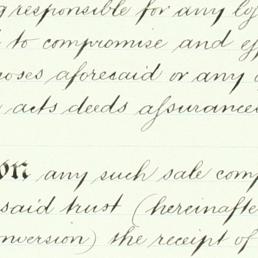 responsible for any
to compromise and
aforesaid or any
acts deeds assurance
on any such sale
said trust (hereinafter
conversion) the receipt of